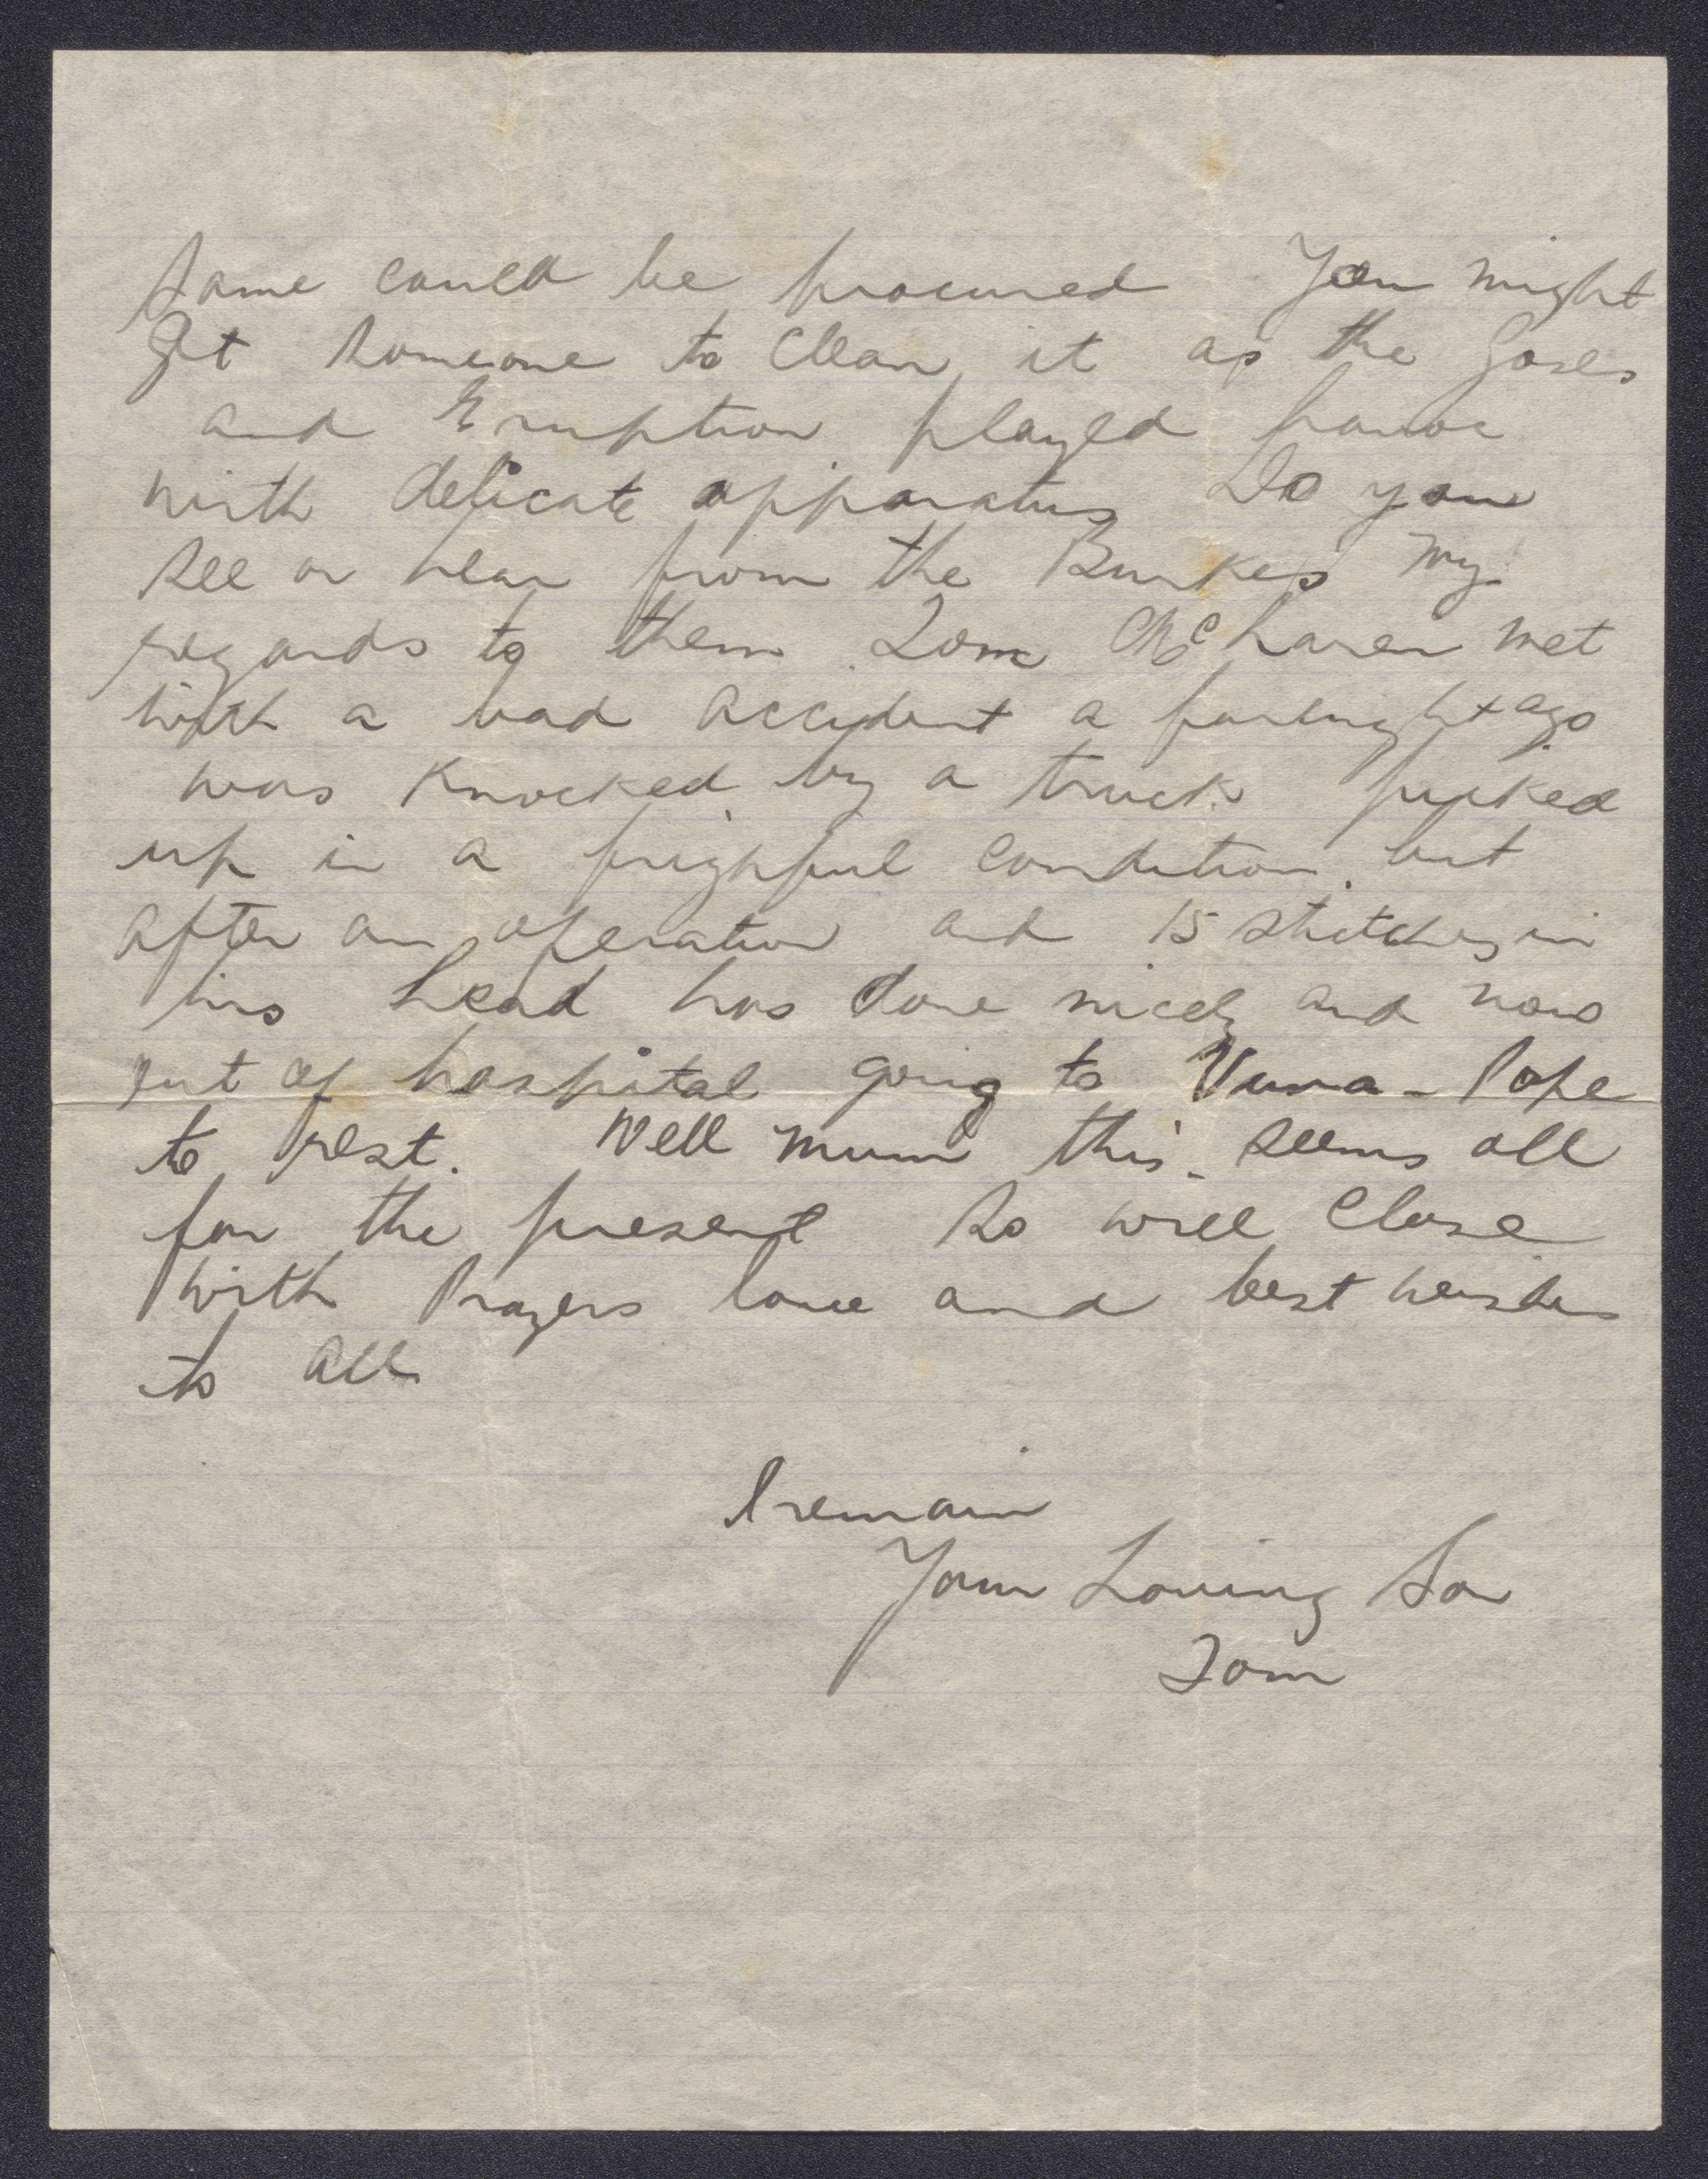 same could be procured You might
get someone to clean it as the gases
and Eruption played havoc
with delicate apparatus Do you
see or hear from the Burkes my
regards to them Tom McLaren met
with a bad accident a fortnight ago
was knocked by a truck picked
up in a frighful condition. but
after an operation and 15 stitches in
his head has done nicely and now
out of hospital going to Vuna-Pope
to rest. Well mum this seems all
for the present so will close
with Prayers love and best wishes
to all
I remain
Your Loving Son
Tom